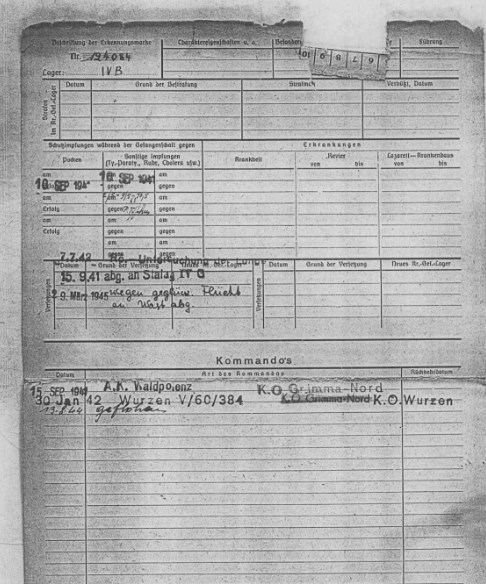 Beschriftung der Erkennungsmarke
Nr. 124044
Lager: IVB
Charaktereigenschaften u. a.
Führung
10 9 8 7 6
Strafen im Kr.-Gef.-Lager
Datum
Grund der Bestrafung
Strafmaß
Verbüßt, Datum
Schutzimpfungen während der Gefangenschaft gegen
Erkrankungen
Pocken
Sonstige Impfungen
(Ty.-Paraty., Ruhr, Cholera usw.)
Krankheit
Revier
von bis
Lazarett – Krankenhaus
von bis
am
10 SEP 1941
am
10 SEP 1941
am
Erfolg
gegen
gegen
am
am
am
Erfolg
gegen
gegen
am
am
am
Erfolg
gegen
gegen
am
am
gegen
gegen
7.7.42 Rö. Untersuchung der Lunge
Versetzungen
Datum
Grund der Versetzung
Neues Kr.-Gef.-Lager
Datum
Grund der Versetzung
Neues Kr.-Gef.-Lager
15. 9.41 abg. an Stalag IV G
9. März 1945 wegen geglück. Flucht
an Wast abg.
Kommandos
Datum
Art des Kommandos
Rückkehrdatum
15 SEP 1941 A.K. Waldpolenz K.O. Grimma-Nord
30 Jan 42 Wurzen V/60/384 K.O. Grimma-Nord K.O. Wurzen
13.8.44 geflohen